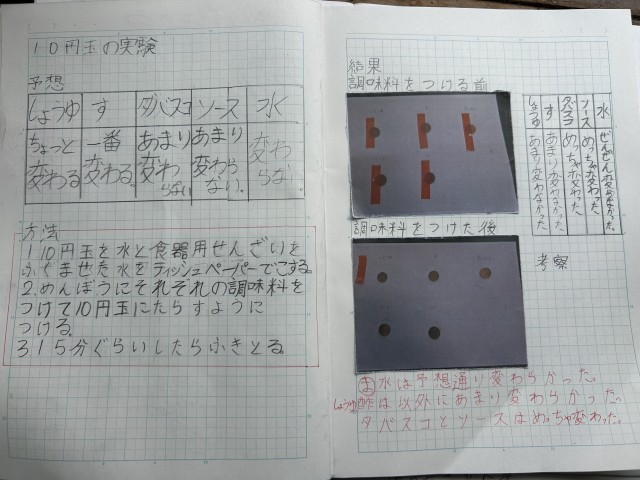 10円玉の実験
予想
しょうゆ す タバスコ ソース 水
ちょっと変わる 一番変わる。 あまり変わらない あまり変わらない。 変わらない。
方法
1.10円玉を水と食器用せんざいを
ふくませた水をティッシュペーパーでこする。
2.めんぼうにそれぞれの調味料を
つけて10円玉にたらすように
つける。
3.15分ぐらいしたらふきとる。
結果
調味料をつける前
しょうゆ す タバスコ ソース 水
あまり変わんなかった。 あまり変わんなかった。 めっちゃ変わった。 めっちゃ変わった。 ぜんぜん変わんなかった。
調味料をつけた後
考察
ま 水は予想通り変わらかった。
しょうゆ 酢は以外にあまり変わらかった。
タバスコとソースはめっちゃ変わった。